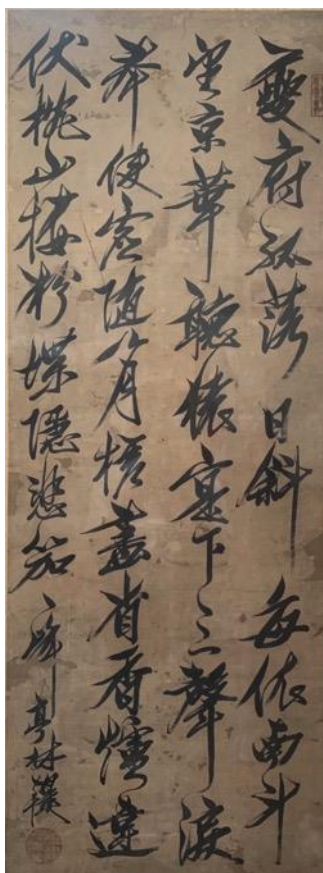 夔府孤落日斜每依南斗
望京華聽猿寔下三聲淚
奉使虛隨八月槎畫省香爐違
伏枕山樓粉堞隱悲笳亭林